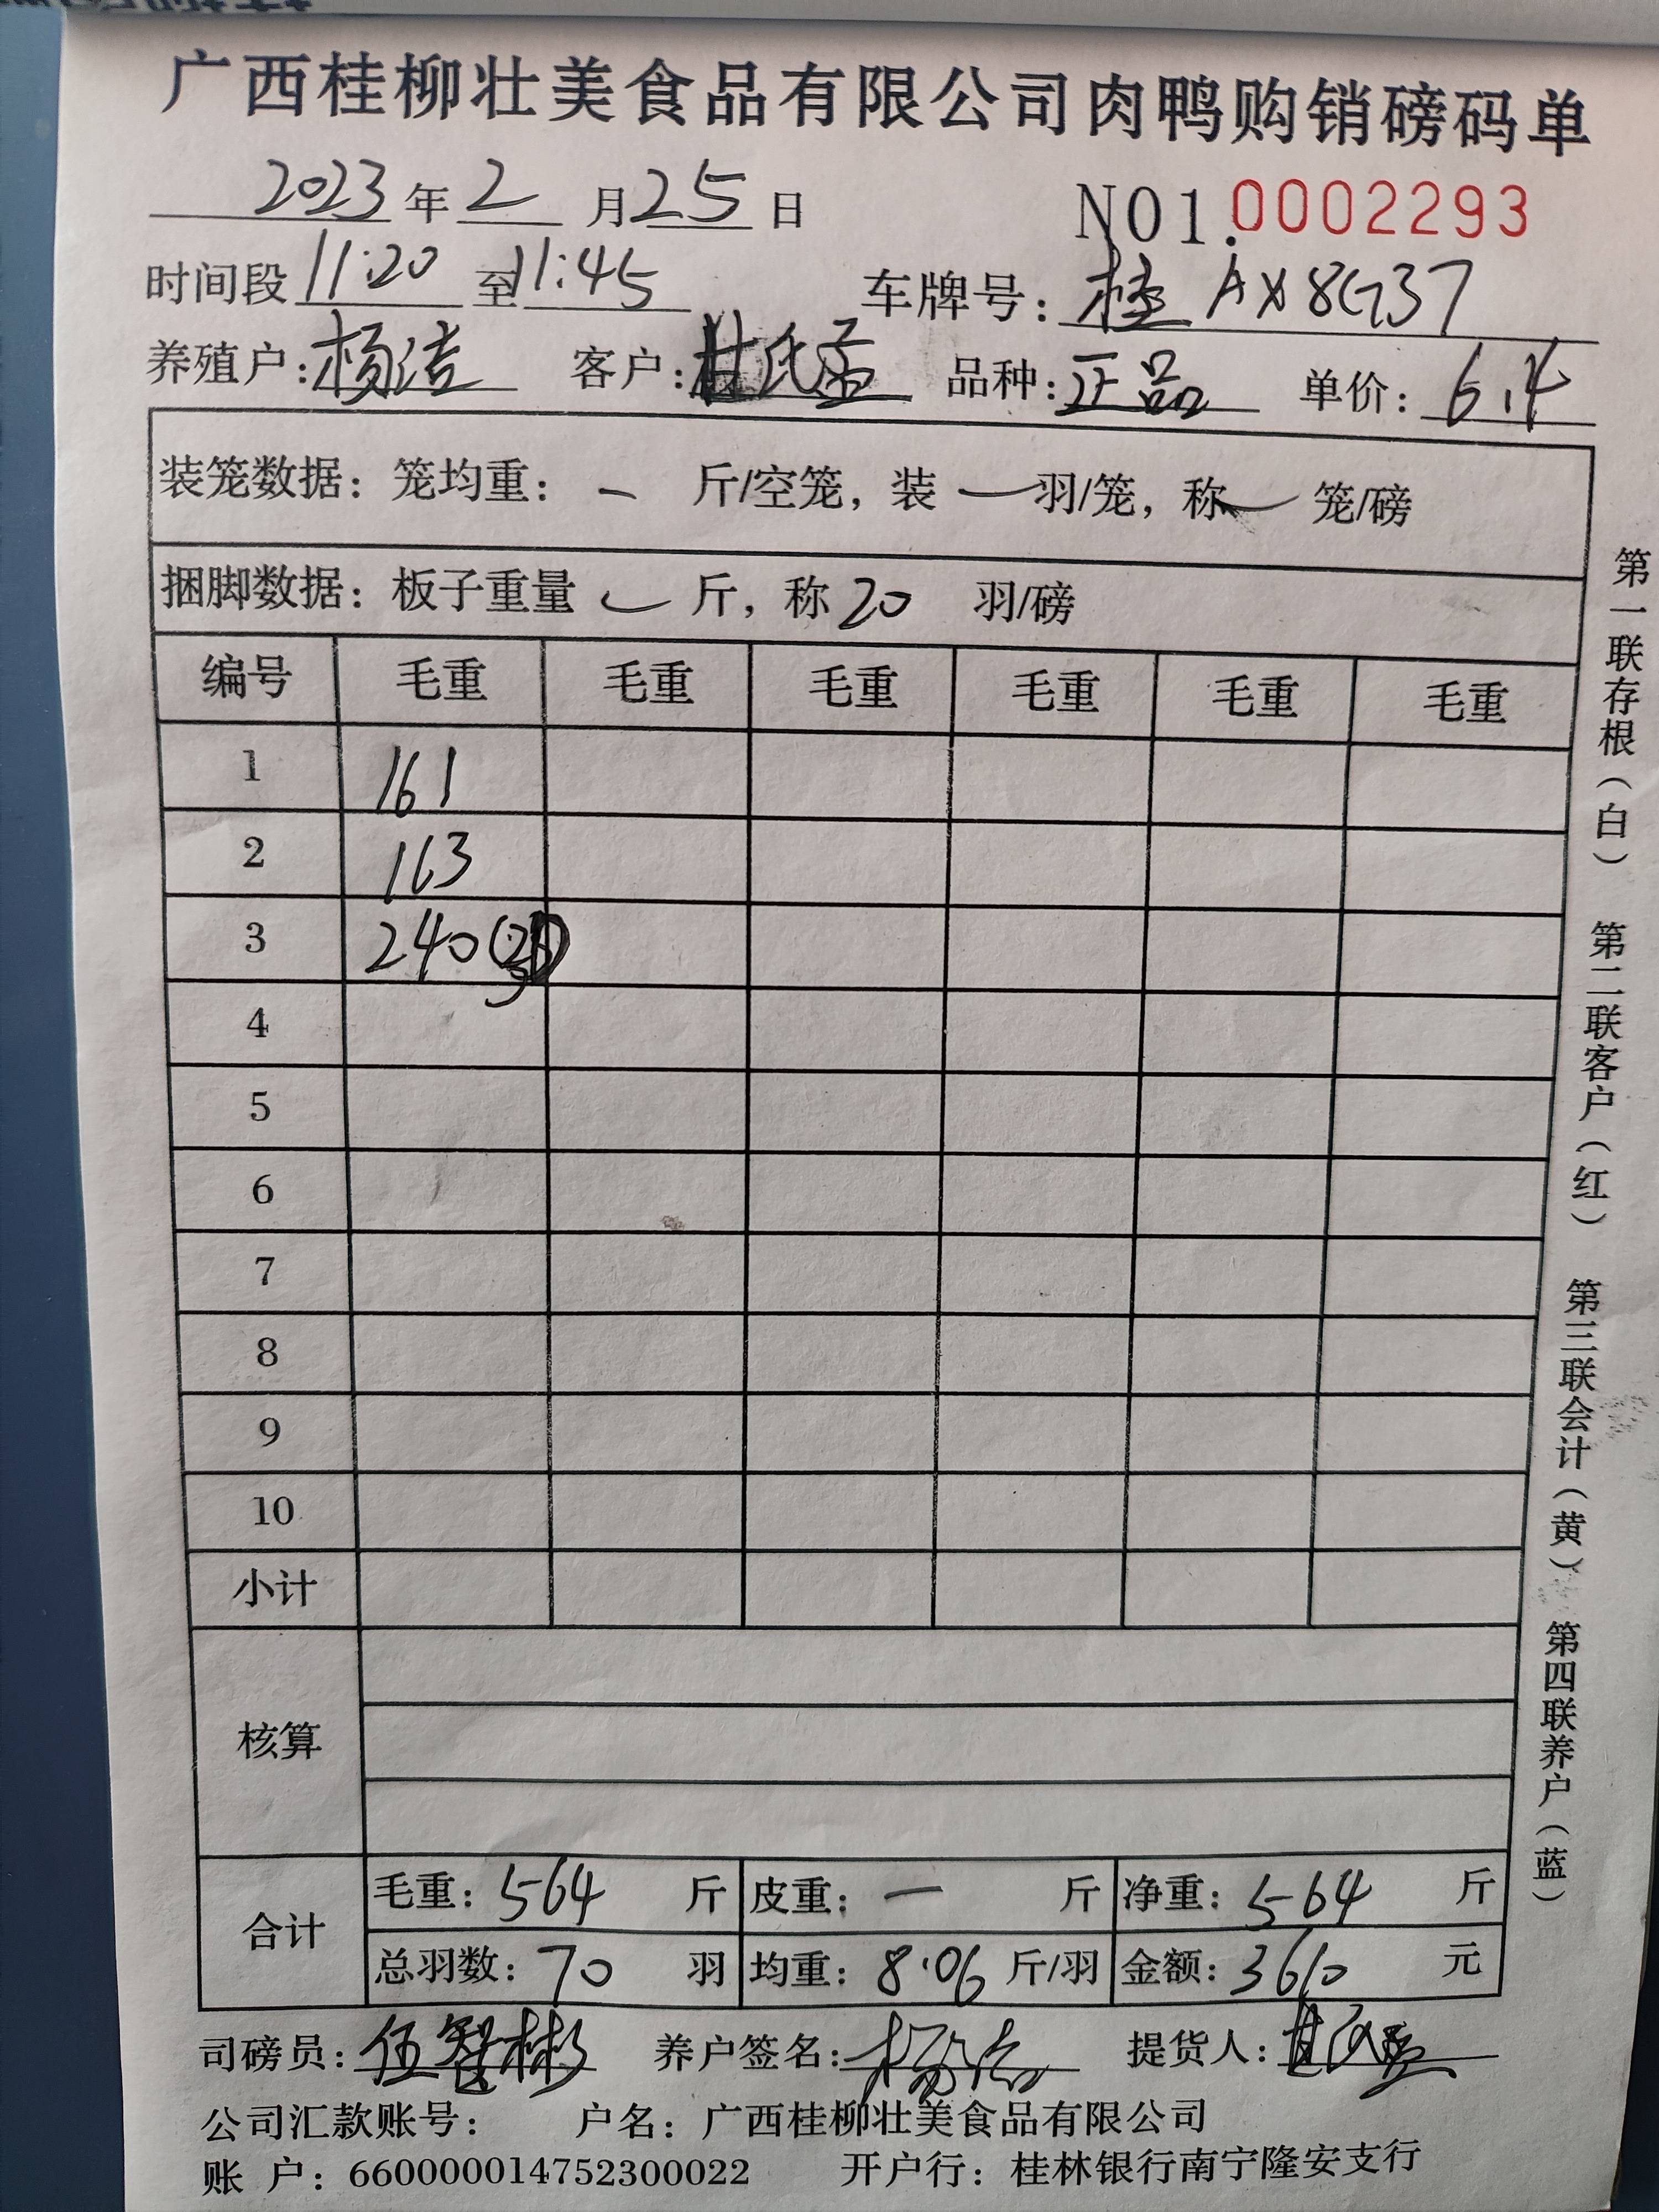 广西桂柳壮美食品有限公司肉鸭购销磅码单
2023年2月25日 NO1.0002293
时间段11:20至11:45 车牌号：桂AX8G37
养殖户：杨洁 客户： 品种：正品 单价：6.4
装笼数据：笼均重：一 斤/空笼，装 一 羽/笼，称 一 笼/磅
捆脚数据：板子重量 斤，称20 羽/磅
编号 毛重 毛重 毛重 毛重 毛重 毛重
1 161
2 163
3 240
4
5
6
7
8
9
10
小计
核算
合计
毛重：564 斤 皮重：一 斤 净重：564 斤
总羽数：70 羽 均重：8.06 斤/羽 金额：3610 元
司磅员：伍智彬 养户签名：杨洁 提货人：
公司汇款账号： 户名：广西桂柳壮美食品有限公司
账 户：660000014752300022 开户行：桂林银行南宁隆安支行
第一联存根（白） 第二联客户（红） 第三联会计（黄） 第四联养户（蓝）